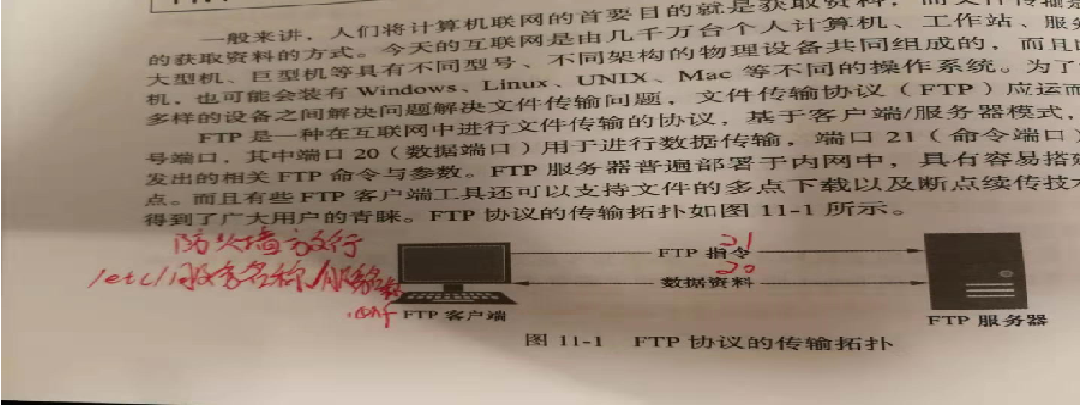 一般来讲，人们将计算机联网的首要目的就是获取资料，而文件传输是
的获取资料的方式。今天的互联网是由几千万台个人计算机、工作站、服
大型机、巨型机等具有不同型号、不同架构的物理设备共同组成的，而且
机，也可能会装有 Windows、Linux、UNIX、Mac 等不同的操作系统。为了
多样的设备之间解决问题解决文件传输问题，文件传输协议（FTP）应运而
FTP 是一种在互联网中进行文件传输的协议，基于客户端/服务器模式，
号端口，其中端口 20（数据端口）用于进行数据传输，端口 21（命令端口）
发出的相关 FTP 命令与参数。FTP 服务器普遍部署于内网中，具有容易搭
点。而且有些 FTP 客户端工具还可以支持文件的多点下载以及断点续传技
得到了广大用户的青睐。FTP 协议的传输拓扑如图 11-1 所示。
防火墙放行
/etc/服务名称/服务
.conf
21
FTP 指令
20
数据资料
FTP 客户端
FTP 服务器
图 11-1 FTP 协议的传输拓扑